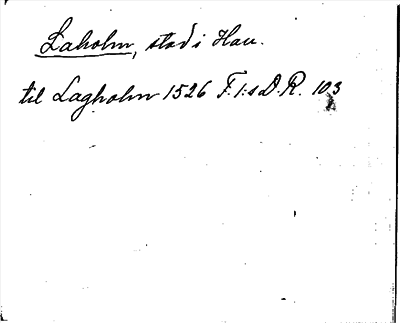 Laholm, stad i Hall.
til Lagholm 1526 F.I:s D.R. 103